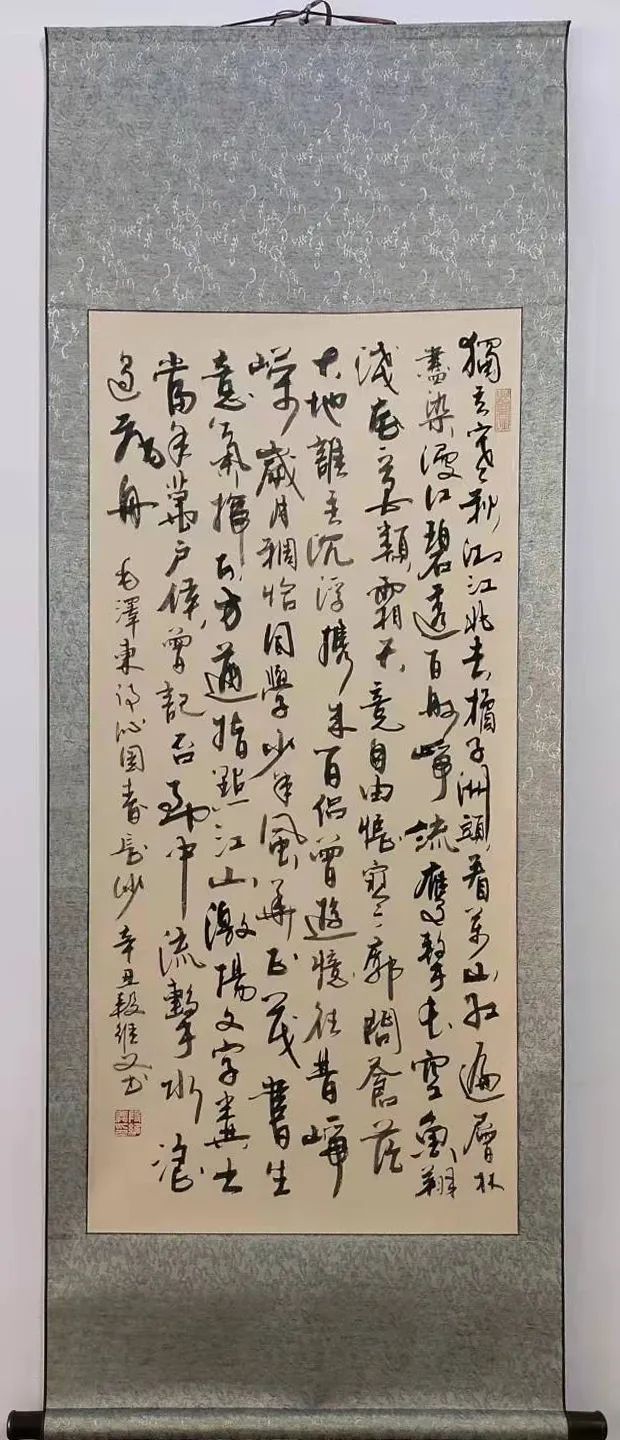 獨立寒秋湘江北去橘子洲頭看萬山紅遍層林
盡染漫江碧透百舸崢流鷹擊長空魚翔
淺底萬類霜天竟自由悵寥廓問蒼茫
大地誰主沉浮攜來百侶曾遊憶往昔崢
嶸歲月稠恰同學少年風華正茂書生
意氣揮斥方遒指點江山激揚文字糞土
當年萬戶侯曾記否到中流擊水浪
遏飛舟
毛澤東詞沁園春長沙辛丑書